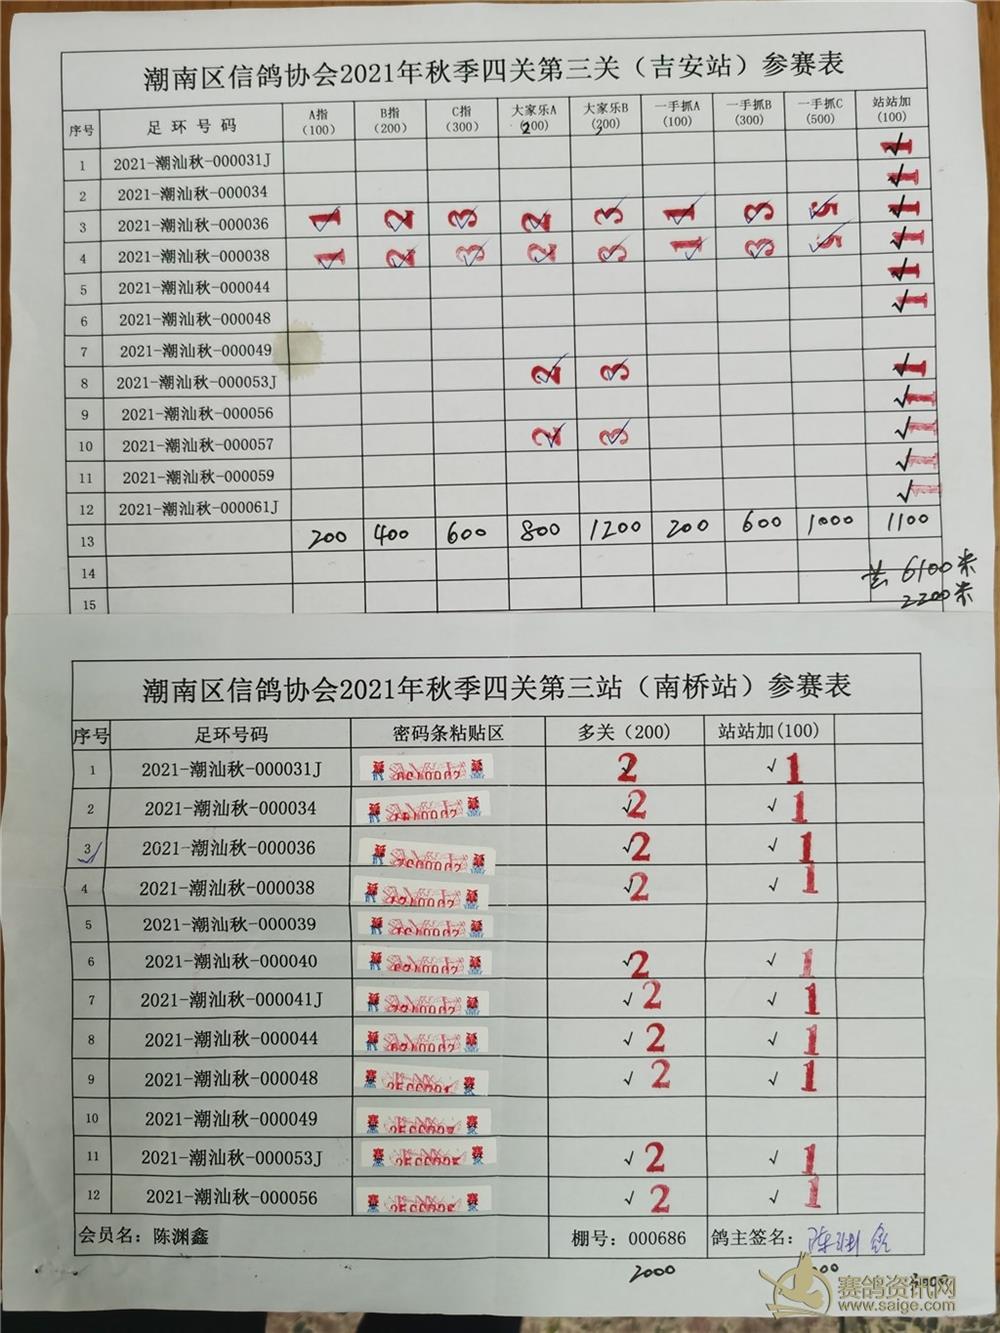 潮南区信鸽协会2021年秋季四关第三关（吉安站）参赛表
序号 足环号码 A指（100） B指（200） C指（300） 大家乐A（200） 大家乐B（200） 一手抓A（100） 一手抓B（300） 一手抓C（500） 站站加（100）
1 2021-潮汕秋-000031J √1
2 2021-潮汕秋-000034 √1
3 2021-潮汕秋-000036 √1 √2 √3 √2 √3 √1 √3 √5 √1
4 2021-潮汕秋-000038 √1 √2 √3 √2 √3 √1 √3 √5 √1
5 2021-潮汕秋-000044 √1
6 2021-潮汕秋-000048 √1
7 2021-潮汕秋-000049
8 2021-潮汕秋-000053J √2 √3 √1
9 2021-潮汕秋-000056 √1
10 2021-潮汕秋-000057 √2 √3 √1
11 2021-潮汕秋-000059 √1
12 2021-潮汕秋-000061J √1
13 200 400 600 800 1200 200 600 1000 1100
14
共 6100米
15
2200米
潮南区信鸽协会2021年秋季四关第三站（南桥站）参赛表
序号 足环号码 密码条粘贴区 多关（200） 站站加(100)
1 2021-潮汕秋-000031J √2 √1
2 2021-潮汕秋-000034 √2 √1
3 2021-潮汕秋-000036 √2 √1
4 2021-潮汕秋-000038 √2 √1
5 2021-潮汕秋-000039
6 2021-潮汕秋-000040 √2 √1
7 2021-潮汕秋-000041J √2 √1
8 2021-潮汕秋-000044 √2 √1
9 2021-潮汕秋-000048 √2 √1
10 2021-潮汕秋-000049
11 2021-潮汕秋-000053J √2 √1
12 2021-潮汕秋-000056 √2 √1
会员名：陈渊鑫 棚号：000686 鸽主签名：陈渊鑫
2000
赛鸽资讯网
www.saige.com